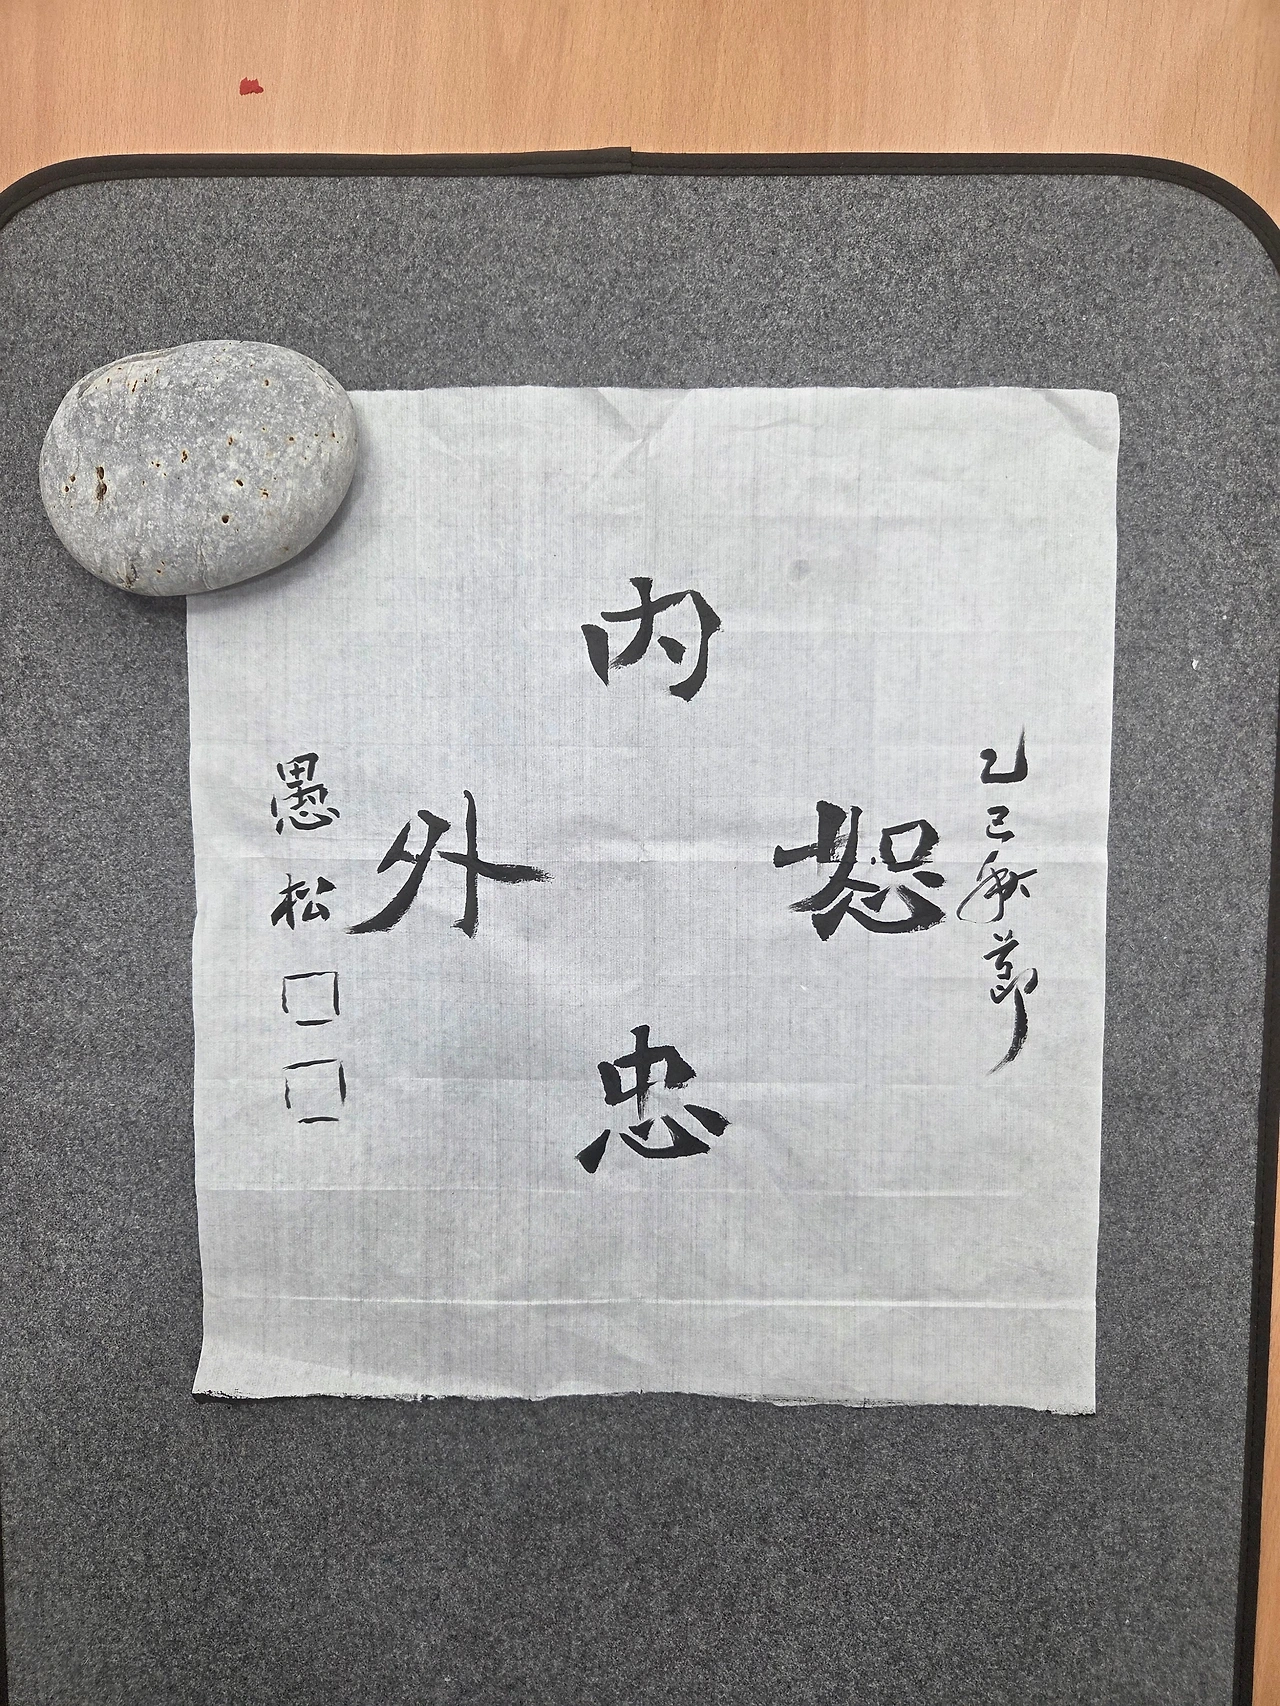 乙巳秋節
內
恕
外
忠
愚松□□